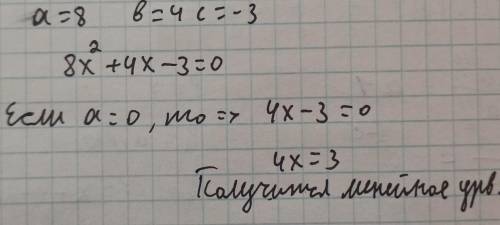 a=8 в=4 c=-3
8x²+4x-3=0
Если a=0, то => 4x-3=0
4x=3
Получится линейное урв.